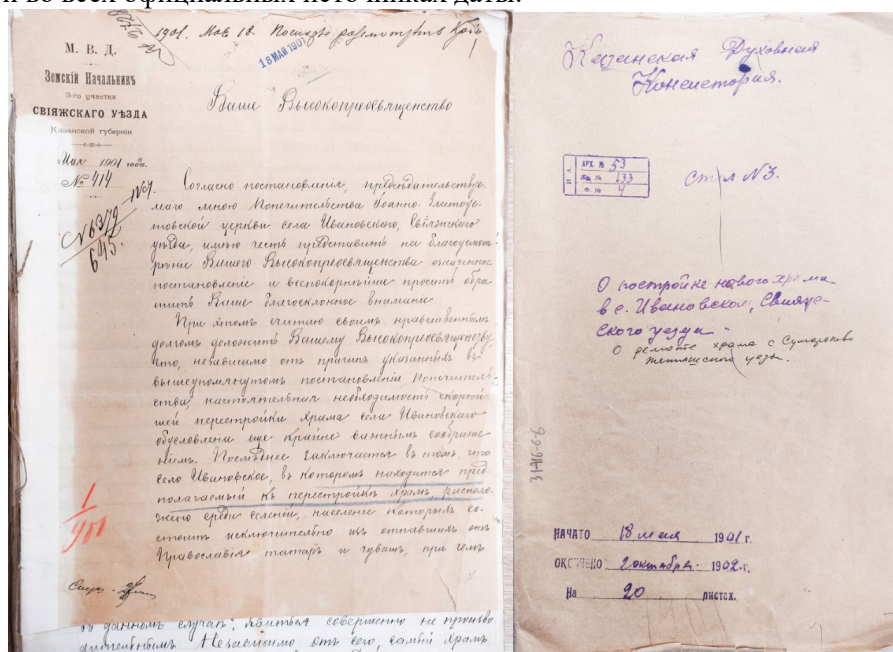 и во всех официальных источниках даты.
1901. Мая 18.
18 МАЯ 1901
М. В. Д.
Земскій Начальникъ
3-го участка
СВІЯЖСКАГО УѢЗДА
Казанской губерніи
Мая 1901 года.
№ 414
№ 6379
645.
Ваше Высокопреосвященство
Согласно постановленія, предсѣдательствуе-
маго мною Попечительства Іоанно-Злато-
устовской церкви села Ивановскаго, Свіяжскаго
уѣзда, имѣю честь представить на благоусмот-
рѣніе Вашего Высокопреосвященства означенное
постановленіе и всепокорнѣйше просить обра-
тить Ваше благосклонное вниманіе
При этомъ считаю своимъ нравственнымъ
долгомъ доложить Вашему Высокопреосвященству
что, независимо отъ причинъ указанныхъ въ
вышеупомянутомъ постановленіи Попечитель-
ства, настоятельная необходимость скорѣй-
шей перестройки храма села Ивановскаго
обусловлена еще крайне важнымъ соображе-
ніемъ. Послѣднее заключается въ томъ, что
село Ивановское, въ которомъ находится пред-
полагаемый къ перестройкѣ храмъ, располо-
жено среди селеній, населеніе которыхъ со-
стоитъ исключительно изъ отпавшихъ отъ
Православія татаръ и чувашъ, при чемъ
1/901
въ данномъ случаѣ, явиться совершенно не произво
дительнымъ Независимо отъ сего, самый храмъ
Казанская Духовная
Консистория.
АРХ. № 53
133
О. № 4
Стол №3.
О постройке нового храма
в с. Ивановском, Свияж-
ского уезда -
О ремонте храма с Сумароково
тетюшского уезд.
31916-6-6
НАЧАТО 18 мая 1901 г.
ОКОНЧЕНО 2 октября 1902 г.
На 20 листах.